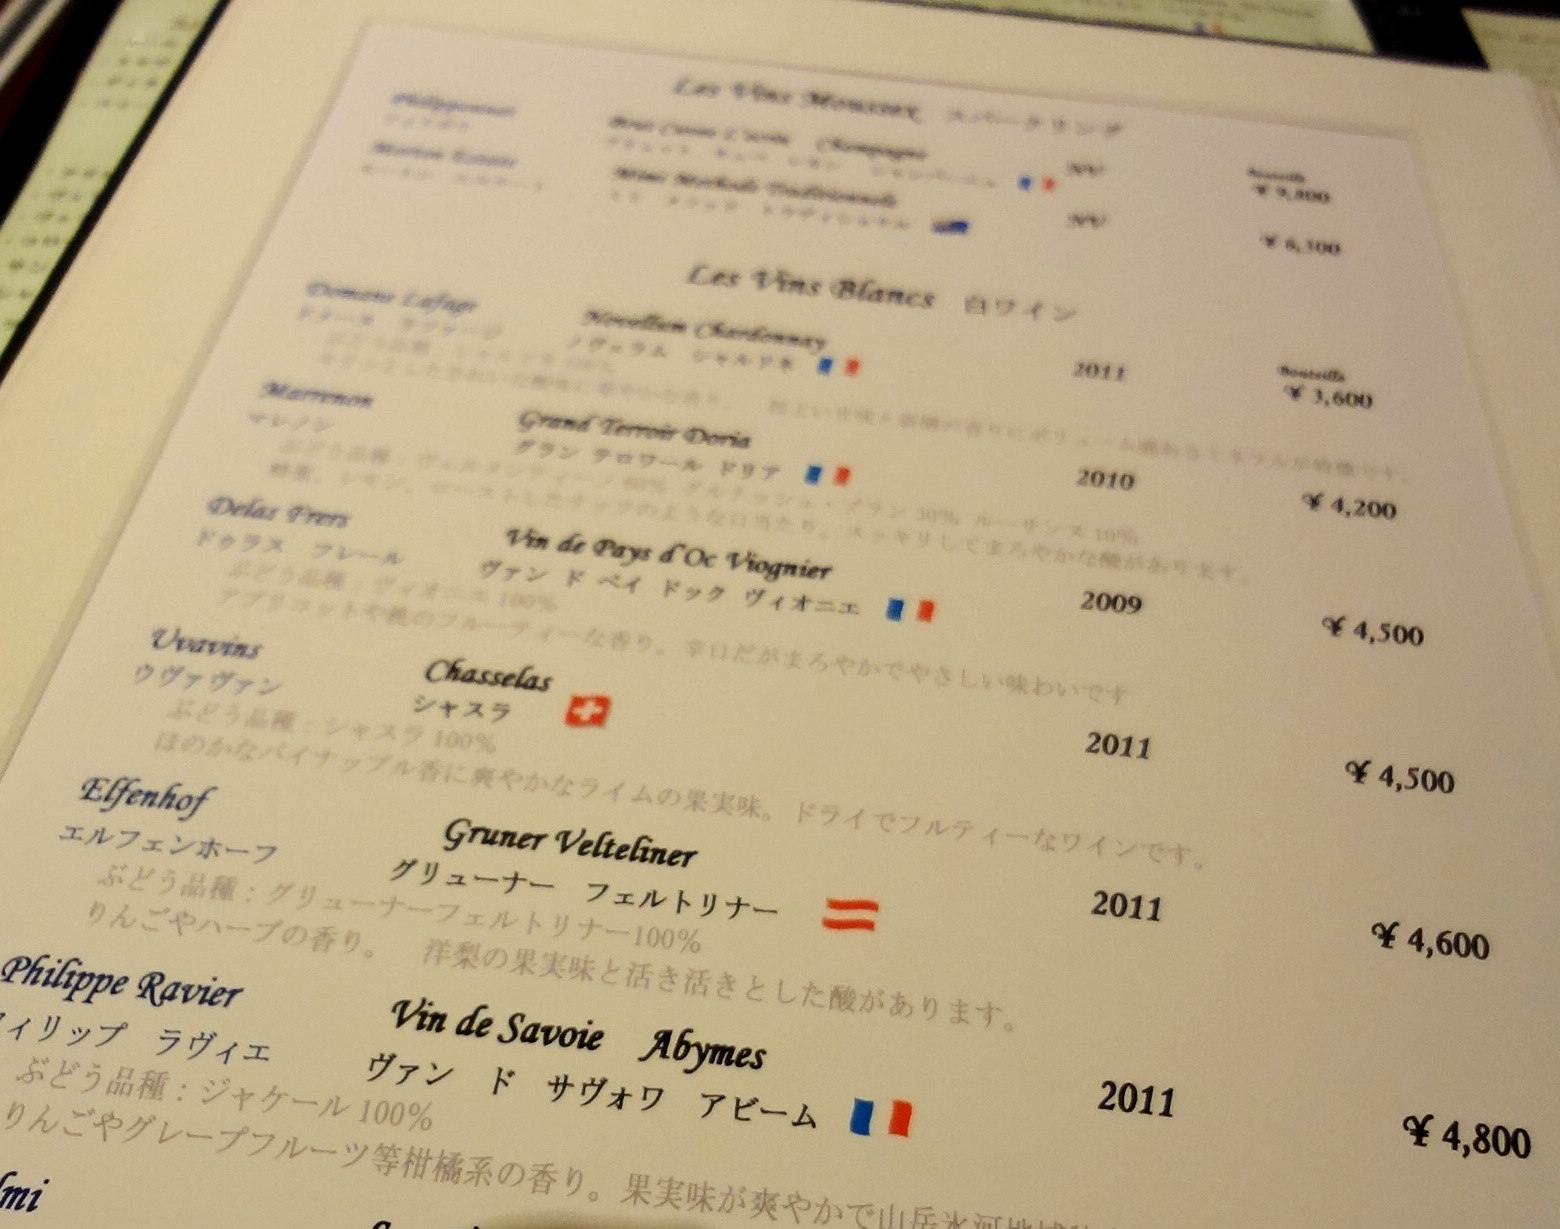 Les Vins Mousseux スパークリング
Philipponnat
Champagne NV
Bouteille
¥ 9,800
NV
¥ 6,300
Les Vins Blancs 白ワイン
Domane Lafage Novellum Chardonnay 2011 Bouteille
¥ 3,600
ドメーヌ ラファージ ノヴェラム シャルドネ
ぶどう品種：シャルドネ 100%
Marrenon Grand Terroir Doria 2010 ¥ 4,200
マレノン グラン テロワール ドリア
ぶどう品種：ヴェルマンティーノ 60% グルナッシュ・ブラン 30% ルーサンヌ 10%
蜂蜜、レモン、ローストしたナッツのような口当たり。スッキリしてまろやかな酸があります。
Delas Frers Vin de Pays d'Oc Viognier 2009 ¥ 4,500
ドゥラス フレール ヴァン ド ペイ ドック ヴィオニエ
ぶどう品種：ヴィオニエ 100%
アプリコットや桃のフルーティーな香り。辛口だがまろやかでやさしい味わいです
Uvavins Chasselas 2011 ¥ 4,500
ウヴァヴァン シャスラ
ぶどう品種：シャスラ 100%
ほのかなパイナップル香に爽やかなライムの果実味。ドライでフルティーなワインです。
Elfenhof Gruner Velteliner 2011 ¥ 4,600
エルフェンホーフ グリューナー フェルトリナー
ぶどう品種：グリューナーフェルトリナー100%
りんごやハーブの香り。 洋梨の果実味と活き活きとした酸があります。
Philippe Ravier Vin de Savoie Abymes 2011 ¥ 4,800
ィリップ ラヴィエ ヴァン ド サヴォワ アビーム
ぶどう品種：ジャケール 100%
りんごやグレープフルーツ等柑橘系の香り。果実味が爽やかで山岳氷河地域
lmi